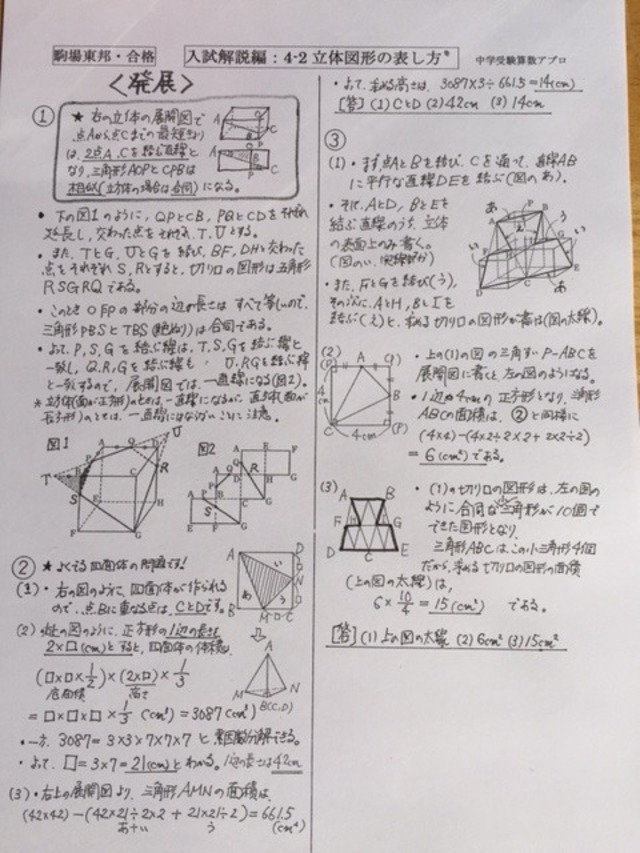 駒場東邦・合格
入試解説編：4-2 立体図形の表し方*
中学受験算数アプロ
<発展>
①
★ 右の立体の展開図で
点Aから点Cまでの最短きょり
は、2点A、Cを結ぶ直線と
なり、三角形AOPとCPBは
相似(立体の場合は合同)になる。
・下の図1のように、QPとCB、PQとCDをそれぞれ
延長し、交わった点をそれぞれ、T、Uとする。
・また、TとG、UとGを結び、BF、DHと交わった
点をそれぞれS、Rとすると、切り口の図形は五角形
RSGRQである。
・このとき の部分の辺の長さはすべて等しいので、
三角形PBSとTBS は合同である。
・よって、P、S、Gを結ぶ線は、T、S、Gを結ぶ線と
一致し、Q、R、Gを結ぶ線も、U、R、Gを結ぶ線
と一致するので、展開図では、一直線になる(図2)。
*立方体(面が正方形)のときは、一直線になるが、直方体(面が
長方形)のときは、一直線にはならないことに注意。
図1
図2
② ★よくでる四面体の問題です!
(1)・右の図のように、四面体が作られる
ので、点Bに重なる点は、CとDです。
(2) の図のように、正方形の1辺の長さを
2×□(cm)とすると、四面体の体積は、
(□×□×1/2)×(2×□)×1/3
底面積 高さ
=□×□×□×1/3 (cm³)=3087(cm³)
・一方、3087=3×3×7×7×7 と素因数分解できる。
・よって、□=3×7=21(cm)とわかる。1辺の長さは42cm
(3)・右上の展開図より、三角形AMNの面積は、
(42×42)-(42×21÷2×2+21×21÷2)=661.5
あ+い う (cm²)
・よって、求める高さは、3087×3÷661.5=14(cm)
[答](1)CとD (2)42cm (3)14cm
③
(1)・まず、点AとBを結び、Cを通って、直線AB
に平行な直線DEを結ぶ(図のあ)。
・そして、AとD、BとEを
結ぶ直線のうち、立体
の表面上のみ書く。
(図のい、実線部分)
・また、FとGを結び(う)、
その次に、AとH、BとIを
結ぶ(え)と、求める切り口の図形が書ける(図の太線)。
(2)
・上の(1)の図の三角すいP-ABCを
展開図に書くと、左の図のようになる。
・1辺が4cmの正方形となり、三角形
ABCの面積は、②と同様に
(4×4)-(4×2÷2×2+2×2÷2)
=6(cm²)である。
(3)
・(1)の切り口の図形は、左の図の
ように合同な小三角形が10個で
できた図形となり、
三角形ABCは、この小三角形4個
だから、求める切り口の図形の面積
(上の図の太線)は、
6×10/4=15(cm²) である。
[答](1)上の図の太線 (2)6cm² (3)15cm²